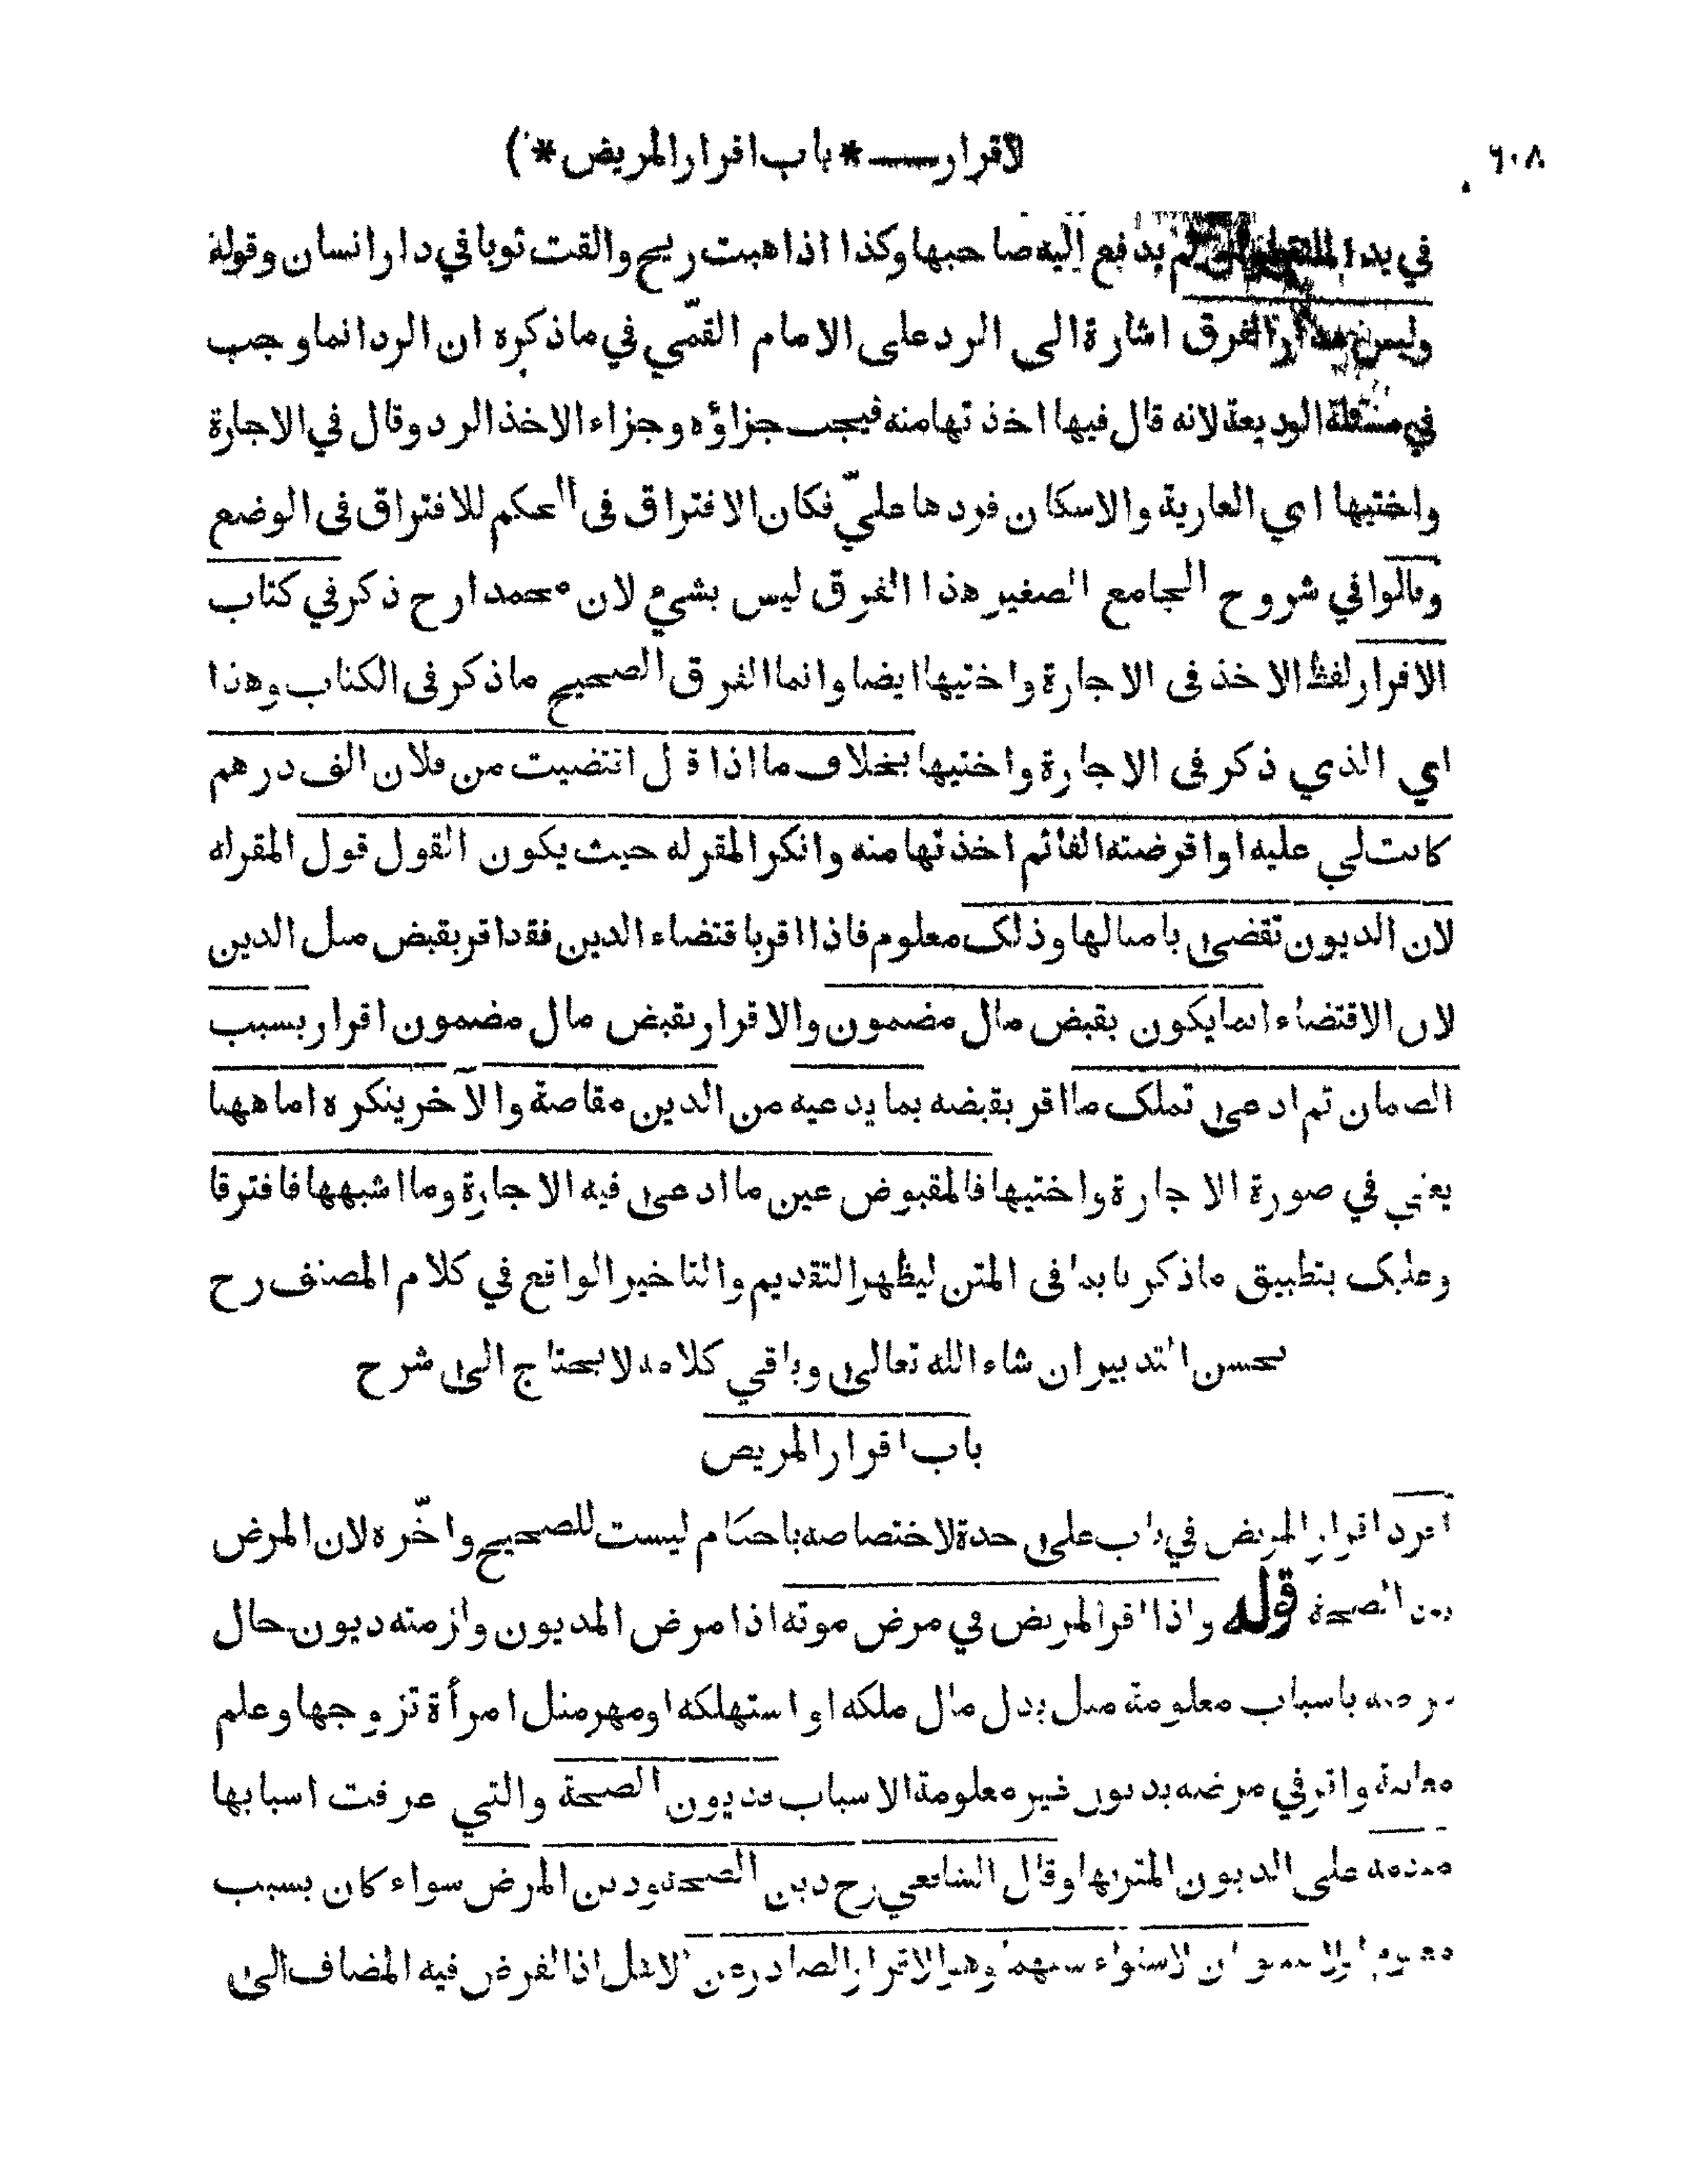 ٦٠٨
لاقرار — * باب اقرار المريض *)
في يد لم يدفع اليه صاحبها وكذا اذا هبت ريح والقت ثوبا في دار انسان وقوله
وليس مدار الفرق اشارة الى الرد على الامام القمّي في ما ذكره ان الرد انما وجب
في مسئلة الوديعة لانه قال فيها اخذتها منه فيجب جزاؤه وجزاء الاخذ الرد وقال في الاجارة
واختيها اي العارية والاسكان فردها عليّ فكان الافتراق في الحكم للافتراق في الوضع
وقالوا في شروح الجامع الصغير هذا الفرق ليس بشيء لان محمدا رح ذكر في كتاب
الاقرار لفظ الاخذ في الاجارة واختيها ايضا وانما الفرق الصحيح ما ذكر في الكتاب وهذا
اي الذي ذكر في الاجارة واختيها بخلاف ما اذا قال اقتضيت من فلان الف درهم
كانت لي عليه او اقرضته الفا ثم اخذتها منه وانكر المقر له حيث يكون القول قول المقر له
لان الديون تقضى بامثالها وذلك معلوم فاذا اقر باقتضاء الدين فقد اقر بقبض مثل الدين
لان الاقتضاء انما يكون بقبض مال مضمون والاقرار بقبض مال مضمون اقرار بسبب
الضمان ثم ادعى تملك ما اقر بقبضه بما يدعيه من الدين مقاصة والآخر ينكره اما ههنا
يعني في صورة الاجارة واختيها فالمقبوض عين ما ادعى فيه الاجارة وما اشبهها فافترقا
وعليك بتطبيق ما ذكرنا بدا في المتن ليظهر التقديم والتاخير الواقع في كلام المصنف رح
بحسن التدبير ان شاء الله تعالى وباقي كلامه لا يحتاج الى شرح
باب اقرار المريض
افرد اقرار المريض في باب على حدة لاختصاصه باحكام ليست للصحيح واخّره لان المرض
بعد الصحة قوله واذا اقر المريض في مرض موته اذا مرض المديون ولزمته ديون حال
مرضه باسباب معلومة مثل بدل مال ملكه او استهلكه او مهر مثل امرأة تزوجها وعلم
معاينة واقر في مرضه بديون غير معلومة الاسباب فديون الصحة والتي عرفت اسبابها
مقدمة على الديون المقر بها وقال الشافعي رح دين الصحة ودين المرض سواء كان بسبب
لاستواء سببهما وهو الاقرار الصادر عن العقل اذ الفرض فيه المضاف الى